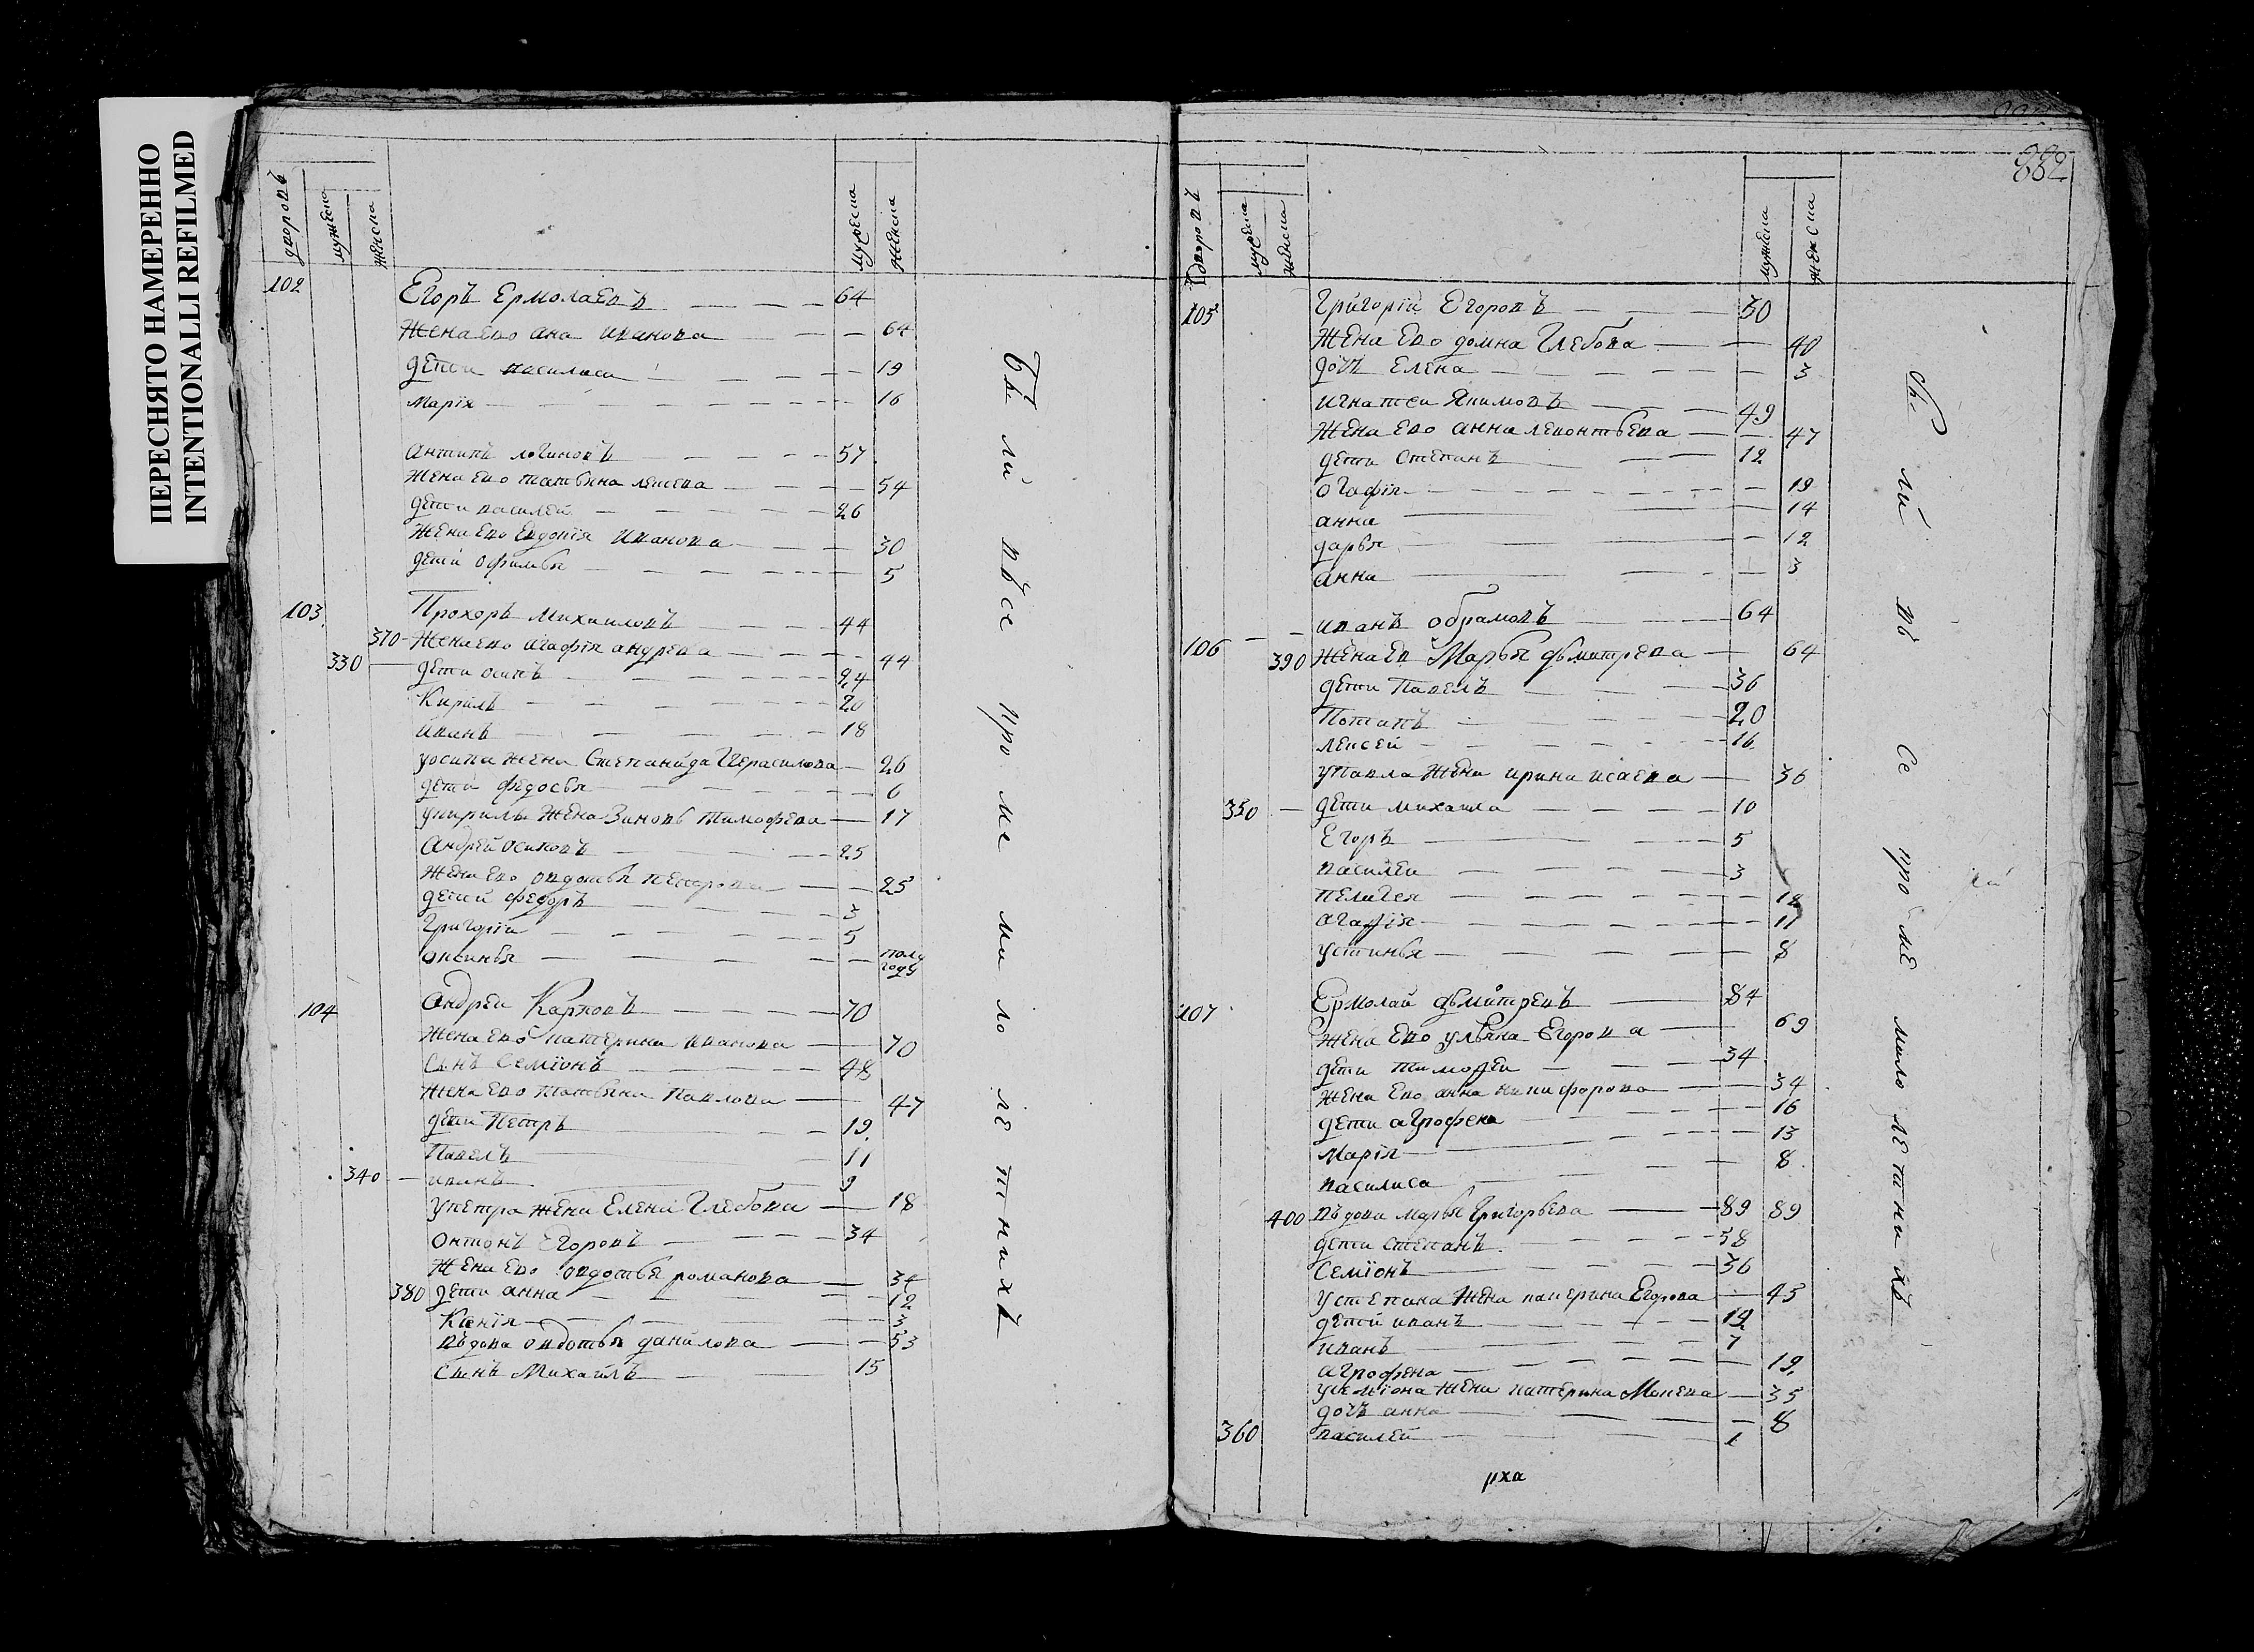 ПЕРЕСНЯТО НАМЕРЕННО
INTENTIONALLI REFILMED
дворовъ
мужеска
женска
мужеска
женска
102
Егоръ Ермолаевъ 64
жена ево ана иванова 64
дети василиса 19
марiя 16
антипъ логиновъ 57
жена ево татьяна 54
дети василей 26
жена ево евдокiя иванова 30
дети офимья 5
103 Прохоръ михаиловъ 44
370 жена ево агафiя андрева 44
330 дети осипъ 24
Кирилъ 20
иванъ 18
уосипа жена Степанида Герасимова 26
дети федосья 6
укирилы жена Зиновь тимофева 17
андрей осиповъ 25
жена ево овдотья петрова 25
детий федоръ 3
григорiи 5
оксинья полу году
104 андреи Карповъ 70
жена ево катерина иванова 70
сынъ семiонъ 48
жена ево татьяна павлова 47
дети Петръ 19
Павелъ 11
340 иванъ 9
упетра жена Елена Глебова 18
онтонъ Егоровъ 34
жена ево овдотья романова 34
380 дети анна 12
Ксенiя 3
въдова овдотья данилова 53
сынъ Михайлъ 15
Бы ли
въсе
про ме
ми ло
ле тнихъ
882
дворовъ
мужеска
женска
мужеска
женска
105 Григорiй Егоровъ 50
жена ево домна Глебова 40
дочъ Елена 3
игнатеи Якимовъ 49
жена ево анна левонтьева 47
дети степанъ 12
огафiя 19
анна 14
дарья 12
анна 3
иванъ обрамовъ 64
106 390 жена ев Марья дьмитрева 64
дети Павелъ 36
Потапъ 20
лексей 16
упавла жена ирина исаева 36
350 дети михаила 10
Егоръ 5
василеи 3
пелагея 12
агафiя 11
устинья 8
107 Ермолай дьмитревъ 84
жена ево ульяна Егорова 69
дети тимофеи 34
жена ево анна никифорова 34
дети агрофена 16
марiя 13
василиса 8
400 въдова марья григорьева 89 89
дети степанъ 58
семiонъ 36
устепана жена катерина Егорова 45
детей иванъ 19
иванъ 7
агрофена 19
усемiона жена катерина 35
дочъ анна 8
360 василей 1
рха
бы ли
въ се
про ме
мило летни хъ